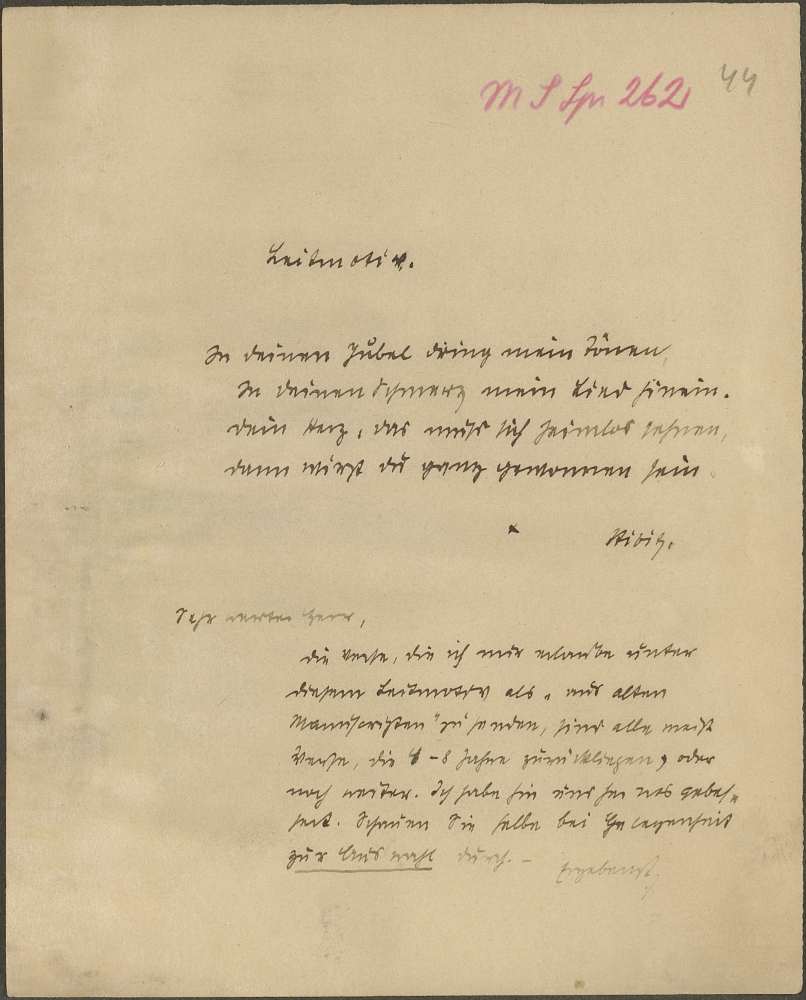 M S Spr 262
44
Leitmotiv.
In deinen Jubel dring mein Tönen,
In deinen Schmerz mein Lied hinein.
dein Herz, das muß sich heimlos sehnen,
dann wirst du ganz gewonnen sein.
Sehr werter Herr,
die Verse, die ich mir erlaube unter
diesem Leitmotiv als „aus alten
Manuscripten“ zu senden, sind alle meist
Verse, die 6–8 Jahre zurückliegen, oder
noch weiter. Ich habe hin und her
Schauen Sie selbe bei Gelegenheit
zur Auswahl durch. –
Ergebenst,